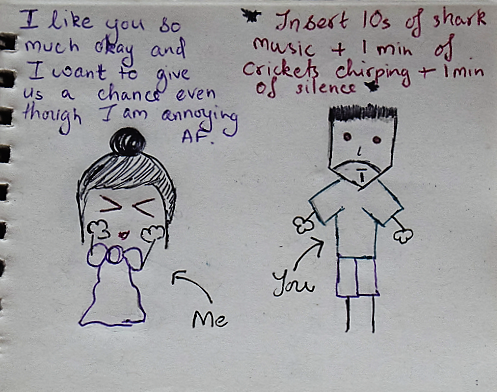 I like you so
much okay and
I want to give
us a chance even
though I am annoying
AF.
* Insert 10s of shark
music + 1 min of
crickets chirping + 1 min
of silence *
You
Me